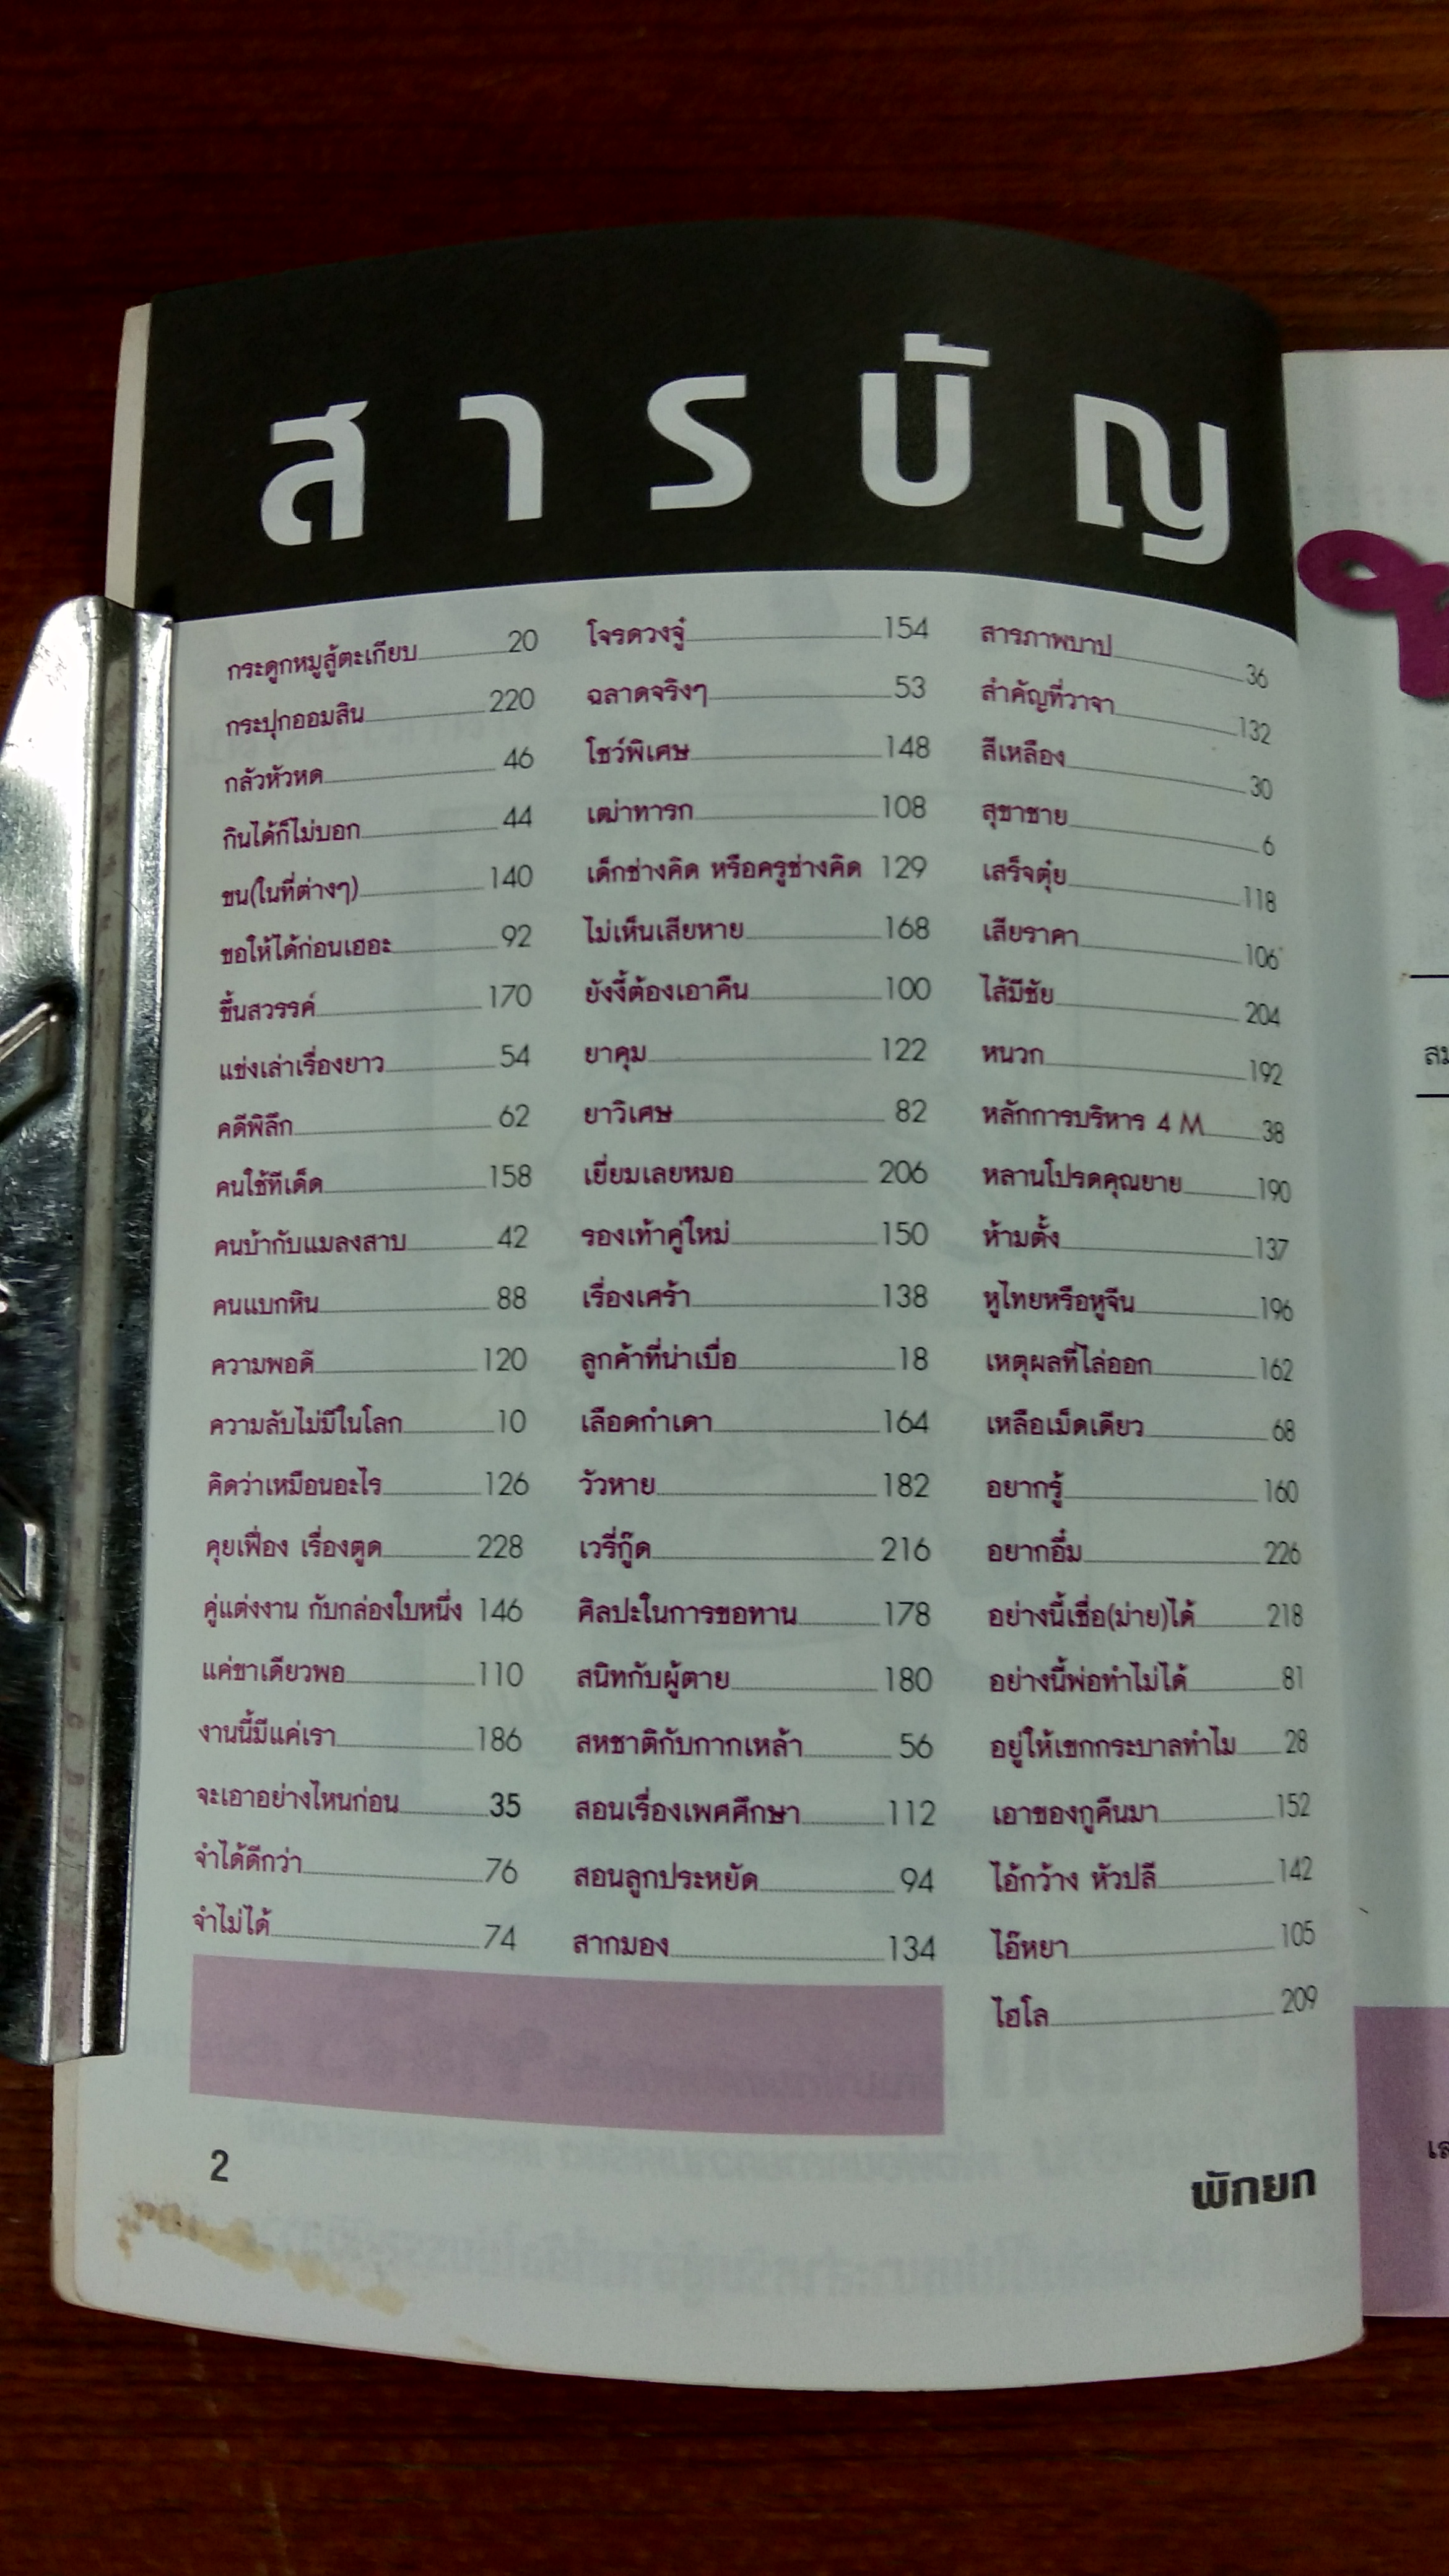 สารบัญ
กระดูกหมูสู้ตะเกียบ 20
กระปุกออมสิน 220
กลัวหัวหด 46
กินได้ก็ไม่บอก 44
ขน(ในที่ต่างๆ) 140
ขอให้ได้ก่อนเฮอะ 92
ขึ้นสวรรค์ 170
แข่งเล่าเรื่องยาว 54
คดีพิลึก 62
คนใช้ทีเด็ด 158
คนบ้ากับแมลงสาบ 42
คนแบกหิน 88
ความพอดี 120
ความลับไม่มีในโลก 10
คิดว่าเหมือนอะไร 126
คุยเฟื่อง เรื่องตูด 228
คู่แต่งงาน กับกล่องใบหนึ่ง 146
แค่ขาเดียวพอ 110
งานนี้มีแค่เรา 186
จะเอาอย่างไหนก่อน 35
จำได้ดีกว่า 76
จำไม่ได้ 74
โจรดวงจู๋ 154
ฉลาดจริงๆ 53
โชว์พิเศษ 148
เฒ่าทารก 108
เด็กช่างคิด หรือครูช่างคิด 129
ไม่เห็นเสียหาย 168
ยังงี้ต้องเอาคืน 100
ยาคุม 122
ยาวิเศษ 82
เยี่ยมเลยหมอ 206
รองเท้าคู่ใหม่ 150
เรื่องเศร้า 138
ลูกค้าที่น่าเบื่อ 18
เลือดกำเดา 164
วัวหาย 182
เวรี่กู๊ด 216
ศิลปะในการขอทาน 178
สนิทกับผู้ตาย 180
สหชาติกับกากเหล้า 56
สอนเรื่องเพศศึกษา 112
สอนลูกประหยัด 94
สากมอง 134
สารภาพบาป 36
สำคัญที่วาจา 132
สีเหลือง 30
สุขาชาย 6
เสร็จตุ๋ย 118
เสียราคา 106
ไส้มีชัย 204
หนวก 192
หลักการบริหาร 4 M 38
หลานโปรดคุณยาย 190
ห้ามตั้ง 137
หูไทยหรือหูจีน 196
เหตุผลที่ไล่ออก 162
เหลือเม็ดเดียว 68
อยากรู้ 160
อยากอึ๋ม 226
อย่างนี้เชื่อ(ม่าย)ได้ 218
อย่างนี้พ่อทำไม่ได้ 81
อยู่ให้เขกกระบาลทำไม 28
เอาของกูคืนมา 152
ไอ้กว้าง หัวปลี 142
ไอ๊หยา 105
ไฮโล 209
2
พักยก